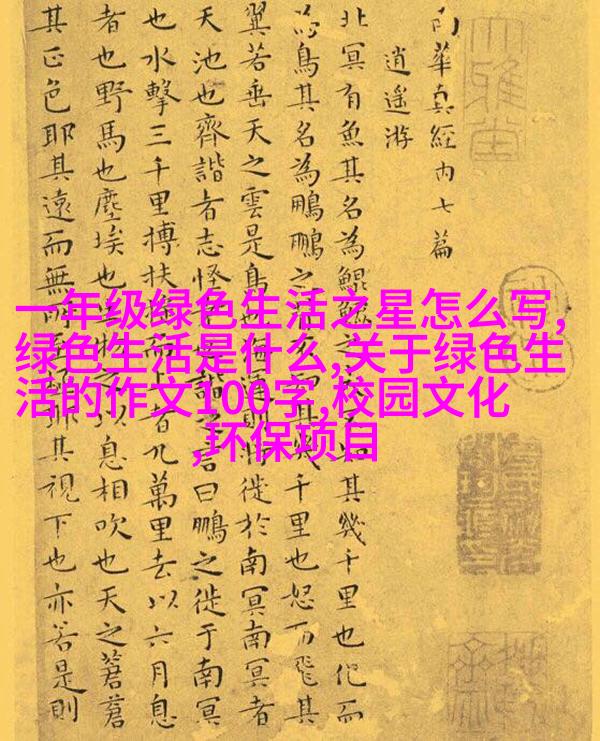 南華真經内七篇
逍遥游
北冥有魚其名為鯤鯤其幾千里也化而
為鳥其名為鵬鵬之幾千里也怒而飛其
翼若垂天之雲是鳥也海運則將徙於南冥南冥者
天池也齊諧者志怪諧之言曰鵬之徙于南冥
也水擊三千里搏扶搖而上者九萬里去以六月息
者也野馬也塵埃也物之以息相吹也天之蒼蒼
其正色耶其遠而無所至極耶其視下也亦若是則
一年级绿色生活之星怎么写,
绿色生活是什么,关于绿色生
活的作文100字,校园文化
,环保项目